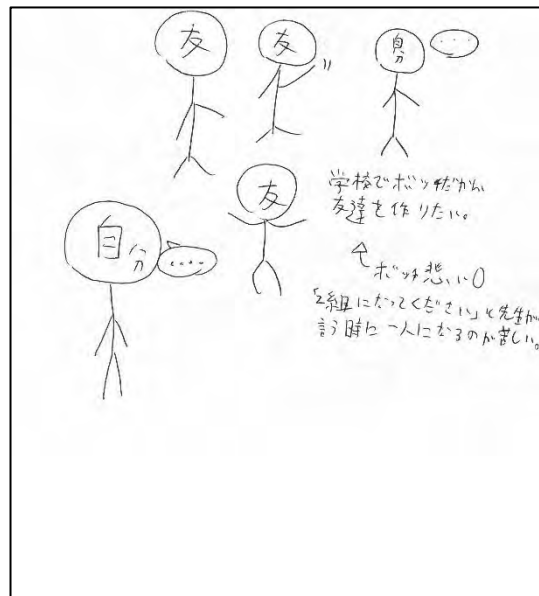 友
友
自分
....
友
自分
....
学校でボッチだから
友達を作りたい。
ボッチ悲しい
「2組になってください」と先生が
言う時に一人になるのが苦しい。